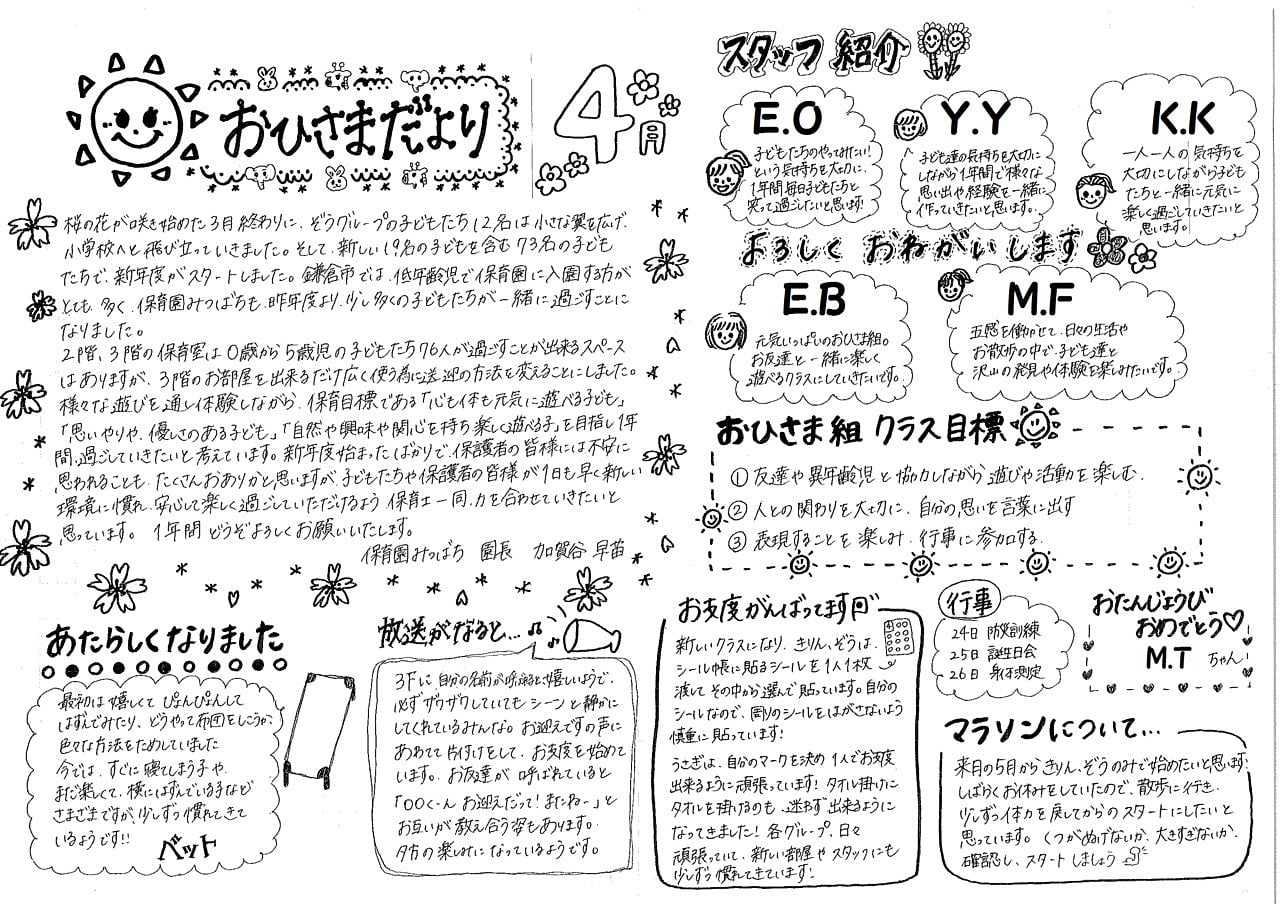 おひさまだより
4月
桜の花が咲き始めた3月終わりに、ぞうグループの子どもたち12名は小さな翼を広げ、
小学校へと飛び立っていきました。そして、新しい19名の子どもを含む73名の子ども
たちで、新年度がスタートしました。鎌倉市では、低年齢児で保育園に入園する方が
とても多く、保育園みつばちも、昨年度より、少し多くの子どもたちが一緒に過ごすことに
なりました。
2階、3階の保育室は0歳から5歳児の子どもたち76人が過ごすことが出来るスペース
はありますが、3階のお部屋を出来るだけ広く使う為に送迎の方法を変えることにしました。
様々な遊びを通し体験しながら、保育目標である「心も体も元気に遊べる子ども」
「思いやりや、優しさのある子ども」「自然や興味や関心を持ち楽しく遊べる子」を目指し1年
間、過ごしていきたいと考えています。新年度始まったばかりで、保護者の皆様には不安に
思われることも、たくさんおありかと思いますが、子どもたちや保護者の皆様が1日も早く新しい
環境に慣れ、安心して楽しく過ごしていただけるよう 保育士一同、力を合わせていきたいと
思っています。 1年間どうぞよろしくお願いいたします。
保育園みつばち 園長 加賀谷 早苗
スタッフ紹介
E.O
子どもたちのやってみたい!
という気持ちを大切に、
1年間毎日子どもたちと
笑って過ごしたいと思います!
Y.Y
子ども達の気持ちを大切に
しながら1年間で様々な
思い出や経験を一緒に
作っていきたいと思います。
K.K
一人一人の気持ちを
大切にしながら子ども
たちと一緒に元気に
楽しく過ごしていきたいと
思います。
よろしく おねがいします
E.B
元気いっぱいのおひさま組。
お友達と一緒に楽しく
遊べるクラスにしていきたいです。
M.F
五感を働かせて、日々の生活や
お散歩の中で、子ども達と
沢山の発見や体験を楽しみたいです。
おひさま組 クラス目標
① 友達や異年齢児と協力しながら遊びや活動を楽しむ.
② 人との関わりを大切に、自分の思いを言葉に出す
③ 表現することを楽しみ、行事に参加する.
あたらしくなりました
最初は嬉しくて ぴょんぴょんして
はずんでみたり、どうやって布団をしこうか、
色々な方法をためしていました
今では、すぐに寝てしまう子や、
まだ楽しくて、横にはずんでいる子など
さまざまですが、少しずつ慣れてきて
いるようです!!
ベット
放送がなると...
3Fに自分の名前が呼ばれると、嬉しいようで、
必ずザワザワしていても シーンと静かに
してくれているみんな。お迎えですの声に
あわせて片付けをして、お支度を始めて
います。お友達が 呼ばれていると
「〇〇く~ん お迎えだって! またね~」と
お互いが教え合う姿もあります.
夕方の楽しみになっているようです。
お支度がんばってます
新しいクラスになり、きりん、ぞうは、
シール帳に貼るシールを1人1枚
渡して その中から選んで貼っています。自分の
シールなので、周りのシールをはがさないよう
慎重に貼っています!
うさぎは、自分のマークを決め 1人でお支度
出来るように頑張っています! タオル掛けに
タオルを掛けるのも、迷わず出来るように
なってきました! 各グループ、日々
頑張っていて、新しい部屋やスタッフにも
少しずつ慣れてきています!
行事
24日 防災訓練
25日 誕生日会
26日 身体測定
おたんじょうび
おめでとう♡
M.T ちゃん
マラソンについて...
来月の5月からきりん、ぞうのみで始めたいと思います.
しばらくお休みをしていたので、散歩に行き、
少しずつ体力を戻してからのスタートにしたいと
思っています。 くつがぬげないか、大きすぎないか、
確認し、スタートしましょう